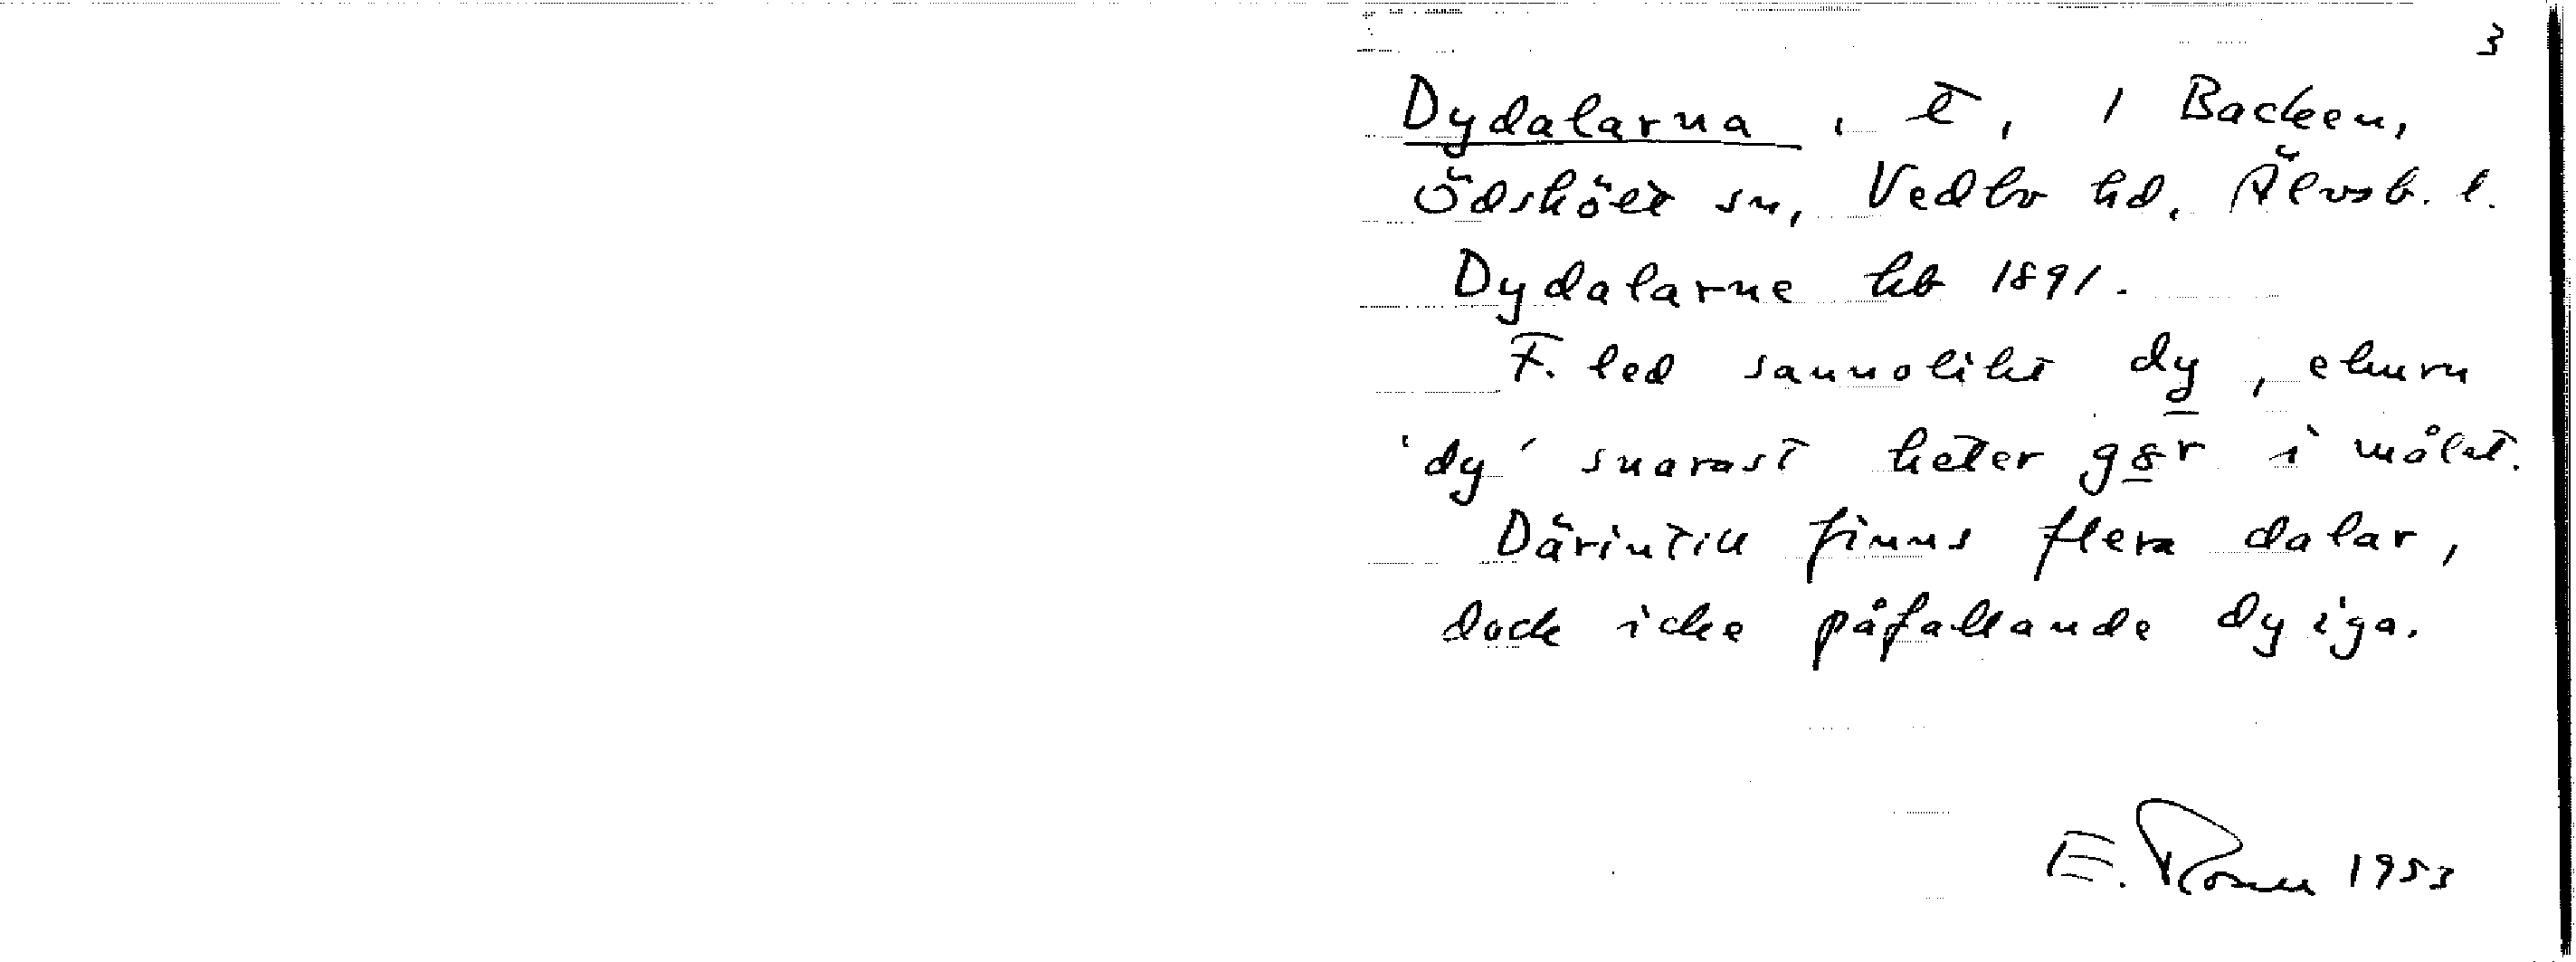 3
Dydalarna, t, 1 Backen,
Ödskölt sn, Vedbo hd, Älvsb. l.
Dydalarne hb 1891.
F. led sannolikt dy, ehuru
'dy' snarast heter gör i målet.
Därintill finns flera dalar,
dock icke påfallande dyiga.
E. Rosell 1953